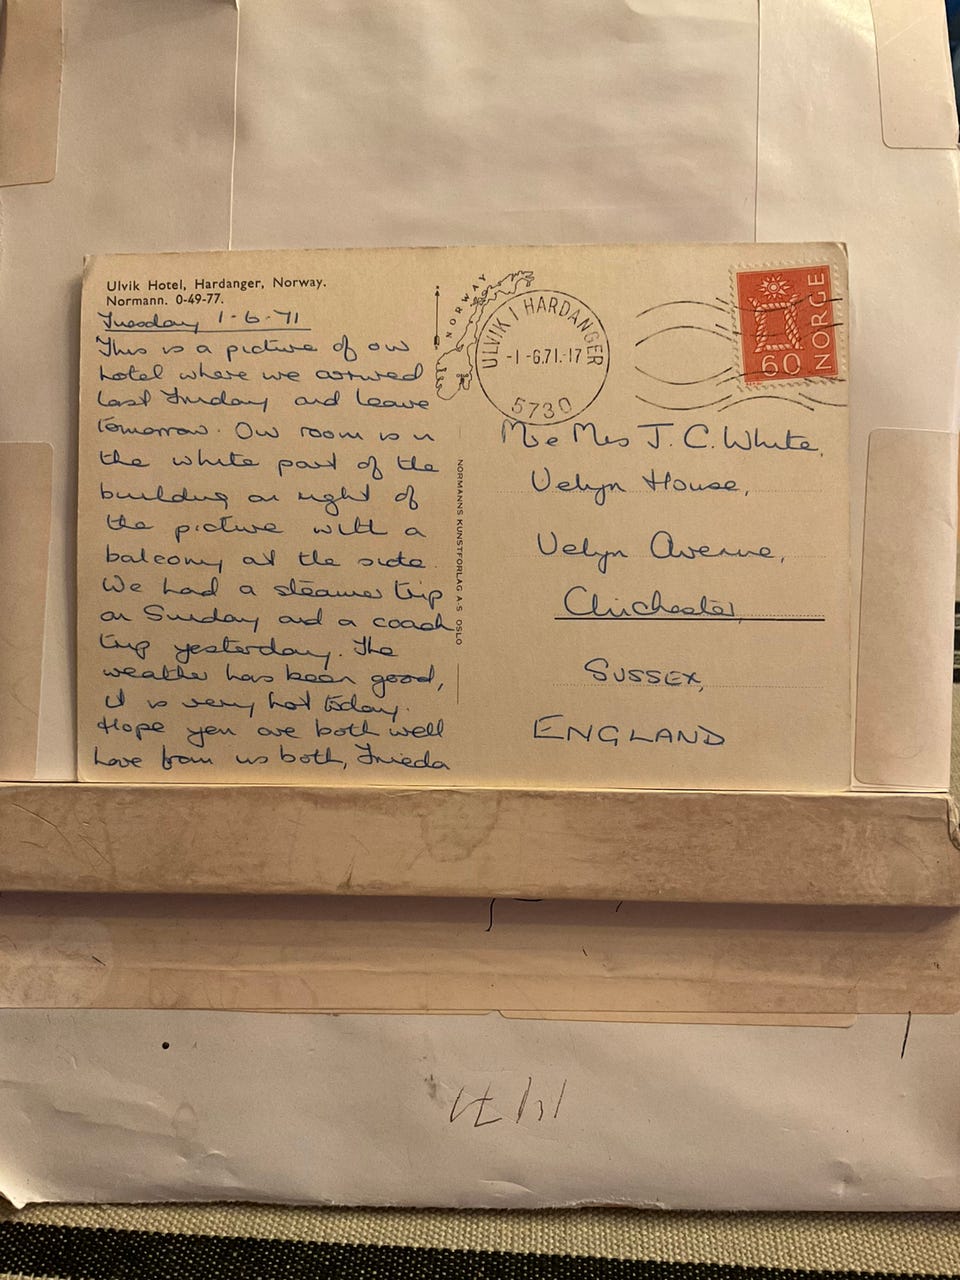 Ulvik Hotel, Hardanger, Norway.
Normann. 0-49-77.
Tuesday 1-6-71
This is a picture of our
hotel where we arrived
last Friday and leave
tomorrow. Our room is in
the white part of the
building on right of
the picture with a
balcony at the side.
We had a steamer trip
on Sunday and a coach
trip yesterday. The
weather has been good,
it is very hot today.
Hope you are both well
Love from us both, Frieda
NORMANNS KUNSTFORLAG A·S OSLO
NORWAY
ULVIK I HARDANGER
-1-6.71.-17
5730
60 NORGE
Mr e Mrs J. C. White,
Velyn House,
Velyn Avenue,
Chichester,
SUSSEX,
ENGLAND